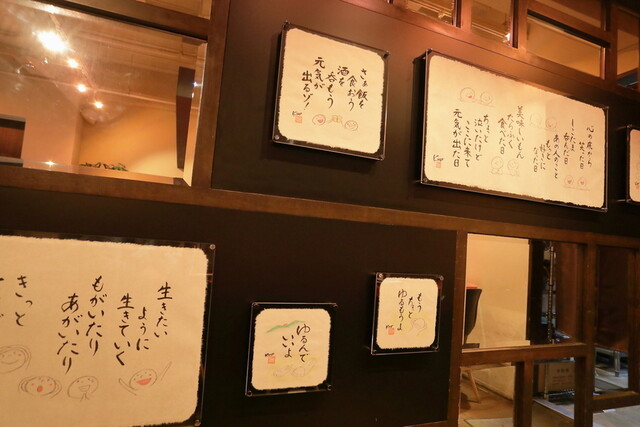 さぁ飯を
食おう
酒を
呑もう
元気が
出るゾ!
心の底から
笑った日
しこたま
呑んだ日
あの人のこと
もっと
好きに
なった日
美味しいもん
たらふく
食べた日
ちょっと
泣いたけど
ここに来て
元気が出た日
生きたい
ように
生きていく
もがいたり
あがいたり
きっと
ゆるんで
いいよ
もう
ちっと
ゆるもうよ